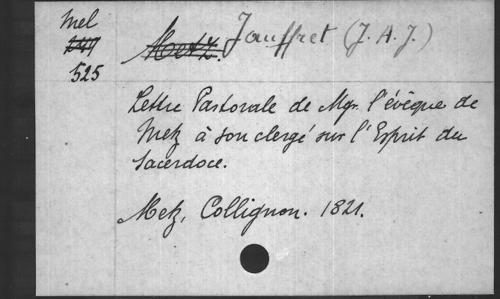 Mel
749
525
Metz. Jauffret (J. A. J.)
Lettre Pastorale de Mgr. l'évêque de
Metz à son clergé sur l'Esprit du
Sacerdoce.
Metz, Collignon. 1821.